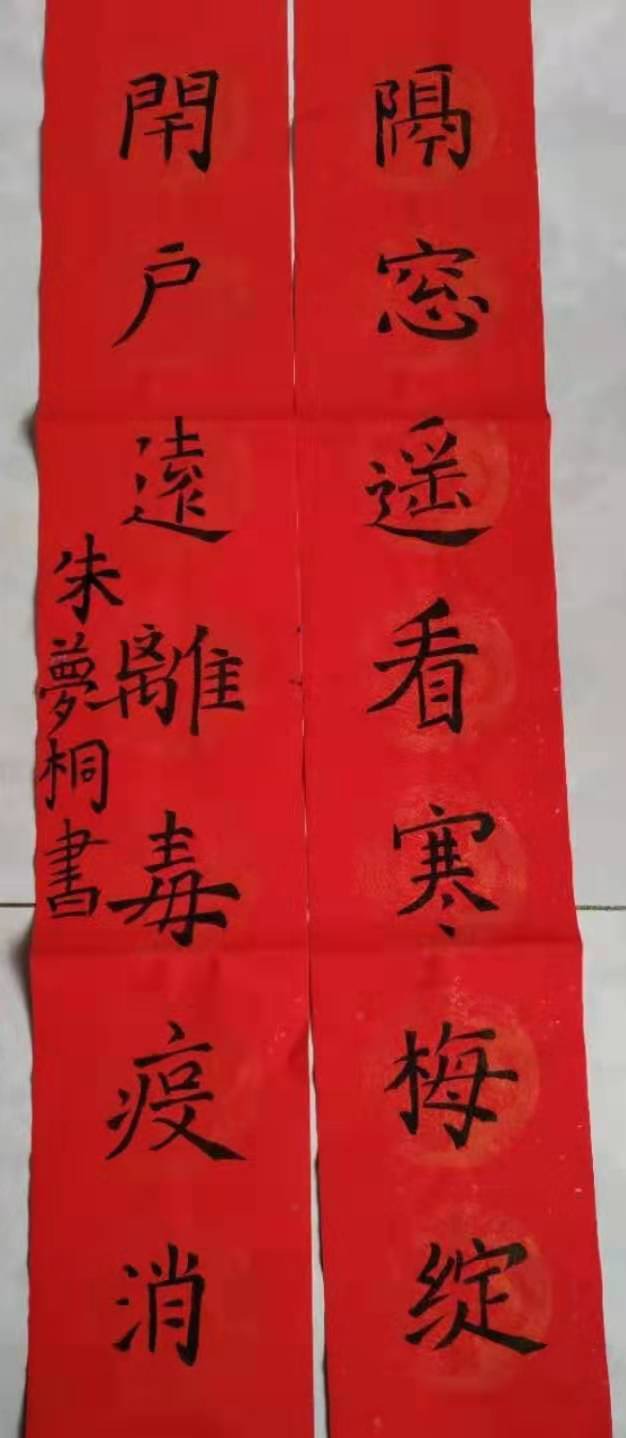 隔窓遥看寒梅绽
閉户遠離毒疫消
朱夢桐書